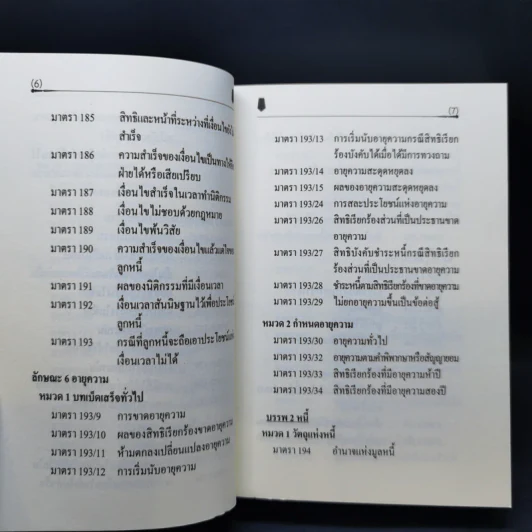 (6)
มาตรา 185 สิทธิและหน้าที่ระหว่างที่เงื่อนไขยังไม่
สำเร็จ
มาตรา 186 ความสำเร็จของเงื่อนไขเป็นทางให้
ฝ่ายได้หรือเสียเปรียบ
มาตรา 187 เงื่อนไขสำเร็จในเวลาทำนิติกรรม
มาตรา 188 เงื่อนไขไม่ชอบด้วยกฎหมาย
มาตรา 189 เงื่อนไขพ้นวิสัย
มาตรา 190 ความสำเร็จของเงื่อนไขแล้วแต่ใจของ
ลูกหนี้
มาตรา 191 ผลของนิติกรรมที่มีเงื่อนเวลา
มาตรา 192 เงื่อนเวลาสันนิษฐานไว้เพื่อประโยชน์
ลูกหนี้
มาตรา 193 กรณีที่ลูกหนี้จะถือเอาประโยชน์แห่ง
เงื่อนเวลาไม่ได้
ลักษณะ 6 อายุความ
หมวด 1 บทเบ็ดเสร็จทั่วไป
มาตรา 193/9 การขาดอายุความ
มาตรา 193/10 ผลของสิทธิเรียกร้องขาดอายุความ
มาตรา 193/11 ห้ามตกลงเปลี่ยนแปลงอายุความ
มาตรา 193/12 การเริ่มนับอายุความ
(7)
มาตรา 193/13 การเริ่มนับอายุความกรณีสิทธิเรียก
ร้องบังคับได้เมื่อได้มีการทวงถาม
มาตรา 193/14 อายุความสะดุดหยุดลง
มาตรา 193/15 ผลของอายุความสะดุดหยุดลง
มาตรา 193/24 การสละประโยชน์แห่งอายุความ
มาตรา 193/26 สิทธิเรียกร้องส่วนที่เป็นประธานขาด
อายุความ
มาตรา 193/27 สิทธิบังคับชำระหนี้กรณีสิทธิเรียก
ร้องส่วนที่เป็นประธานขาดอายุความ
มาตรา 193/28 ชำระหนี้ตามสิทธิเรียกร้องที่ขาดอายุความ
มาตรา 193/29 ไม่ยกอายุความขึ้นเป็นข้อต่อสู้
หมวด 2 กำหนดอายุความ
มาตรา 193/30 อายุความทั่วไป
มาตรา 193/32 อายุความตามคำพิพากษาหรือสัญญายอม
มาตรา 193/33 สิทธิเรียกร้องที่มีอายุความห้าปี
มาตรา 193/34 สิทธิเรียกร้องที่มีอายุความสองปี
บรรพ 2 หนี้
หมวด 1 วัตถุแห่งหนี้
มาตรา 194 อำนาจแห่งมูลหนี้